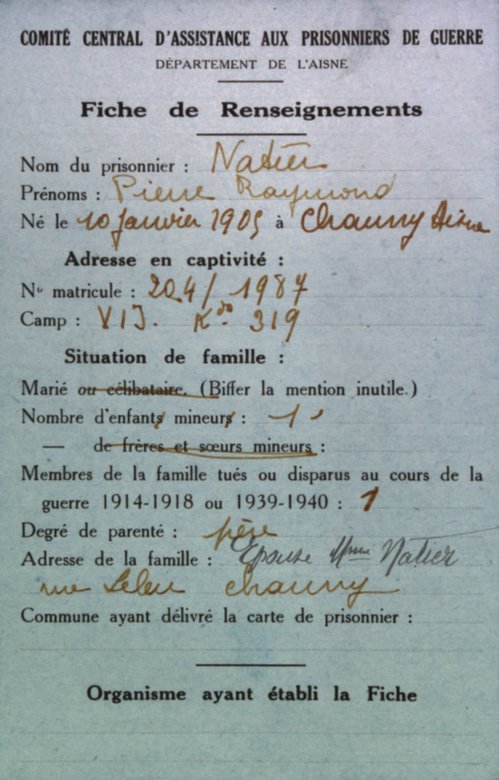 COMITÉ CENTRAL D'ASSISTANCE AUX PRISONNIERS DE GUERRE
DÉPARTEMENT DE L'AISNE
Fiche de Renseignements
Nom du prisonnier : Natier
Prénoms : Pierre Raymond
Né le 10 janvier 1905 à Chauny Aisne
Adresse en captivité :
N° matricule : 204 / 1987
Camp : VIJ. Kdo 319
Situation de famille :
Marié ou célibataire. (Biffer la mention inutile.)
Nombre d'enfants mineurs : 1
— de frères et sœurs mineurs :
Membres de la famille tués ou disparus au cours de la
guerre 1914-1918 ou 1939-1940 : 1
Degré de parenté : père
Adresse de la famille : Epouse Mme Natier
rue Leleu chauny
Commune ayant délivré la carte de prisonnier :
Organisme ayant établi la Fiche